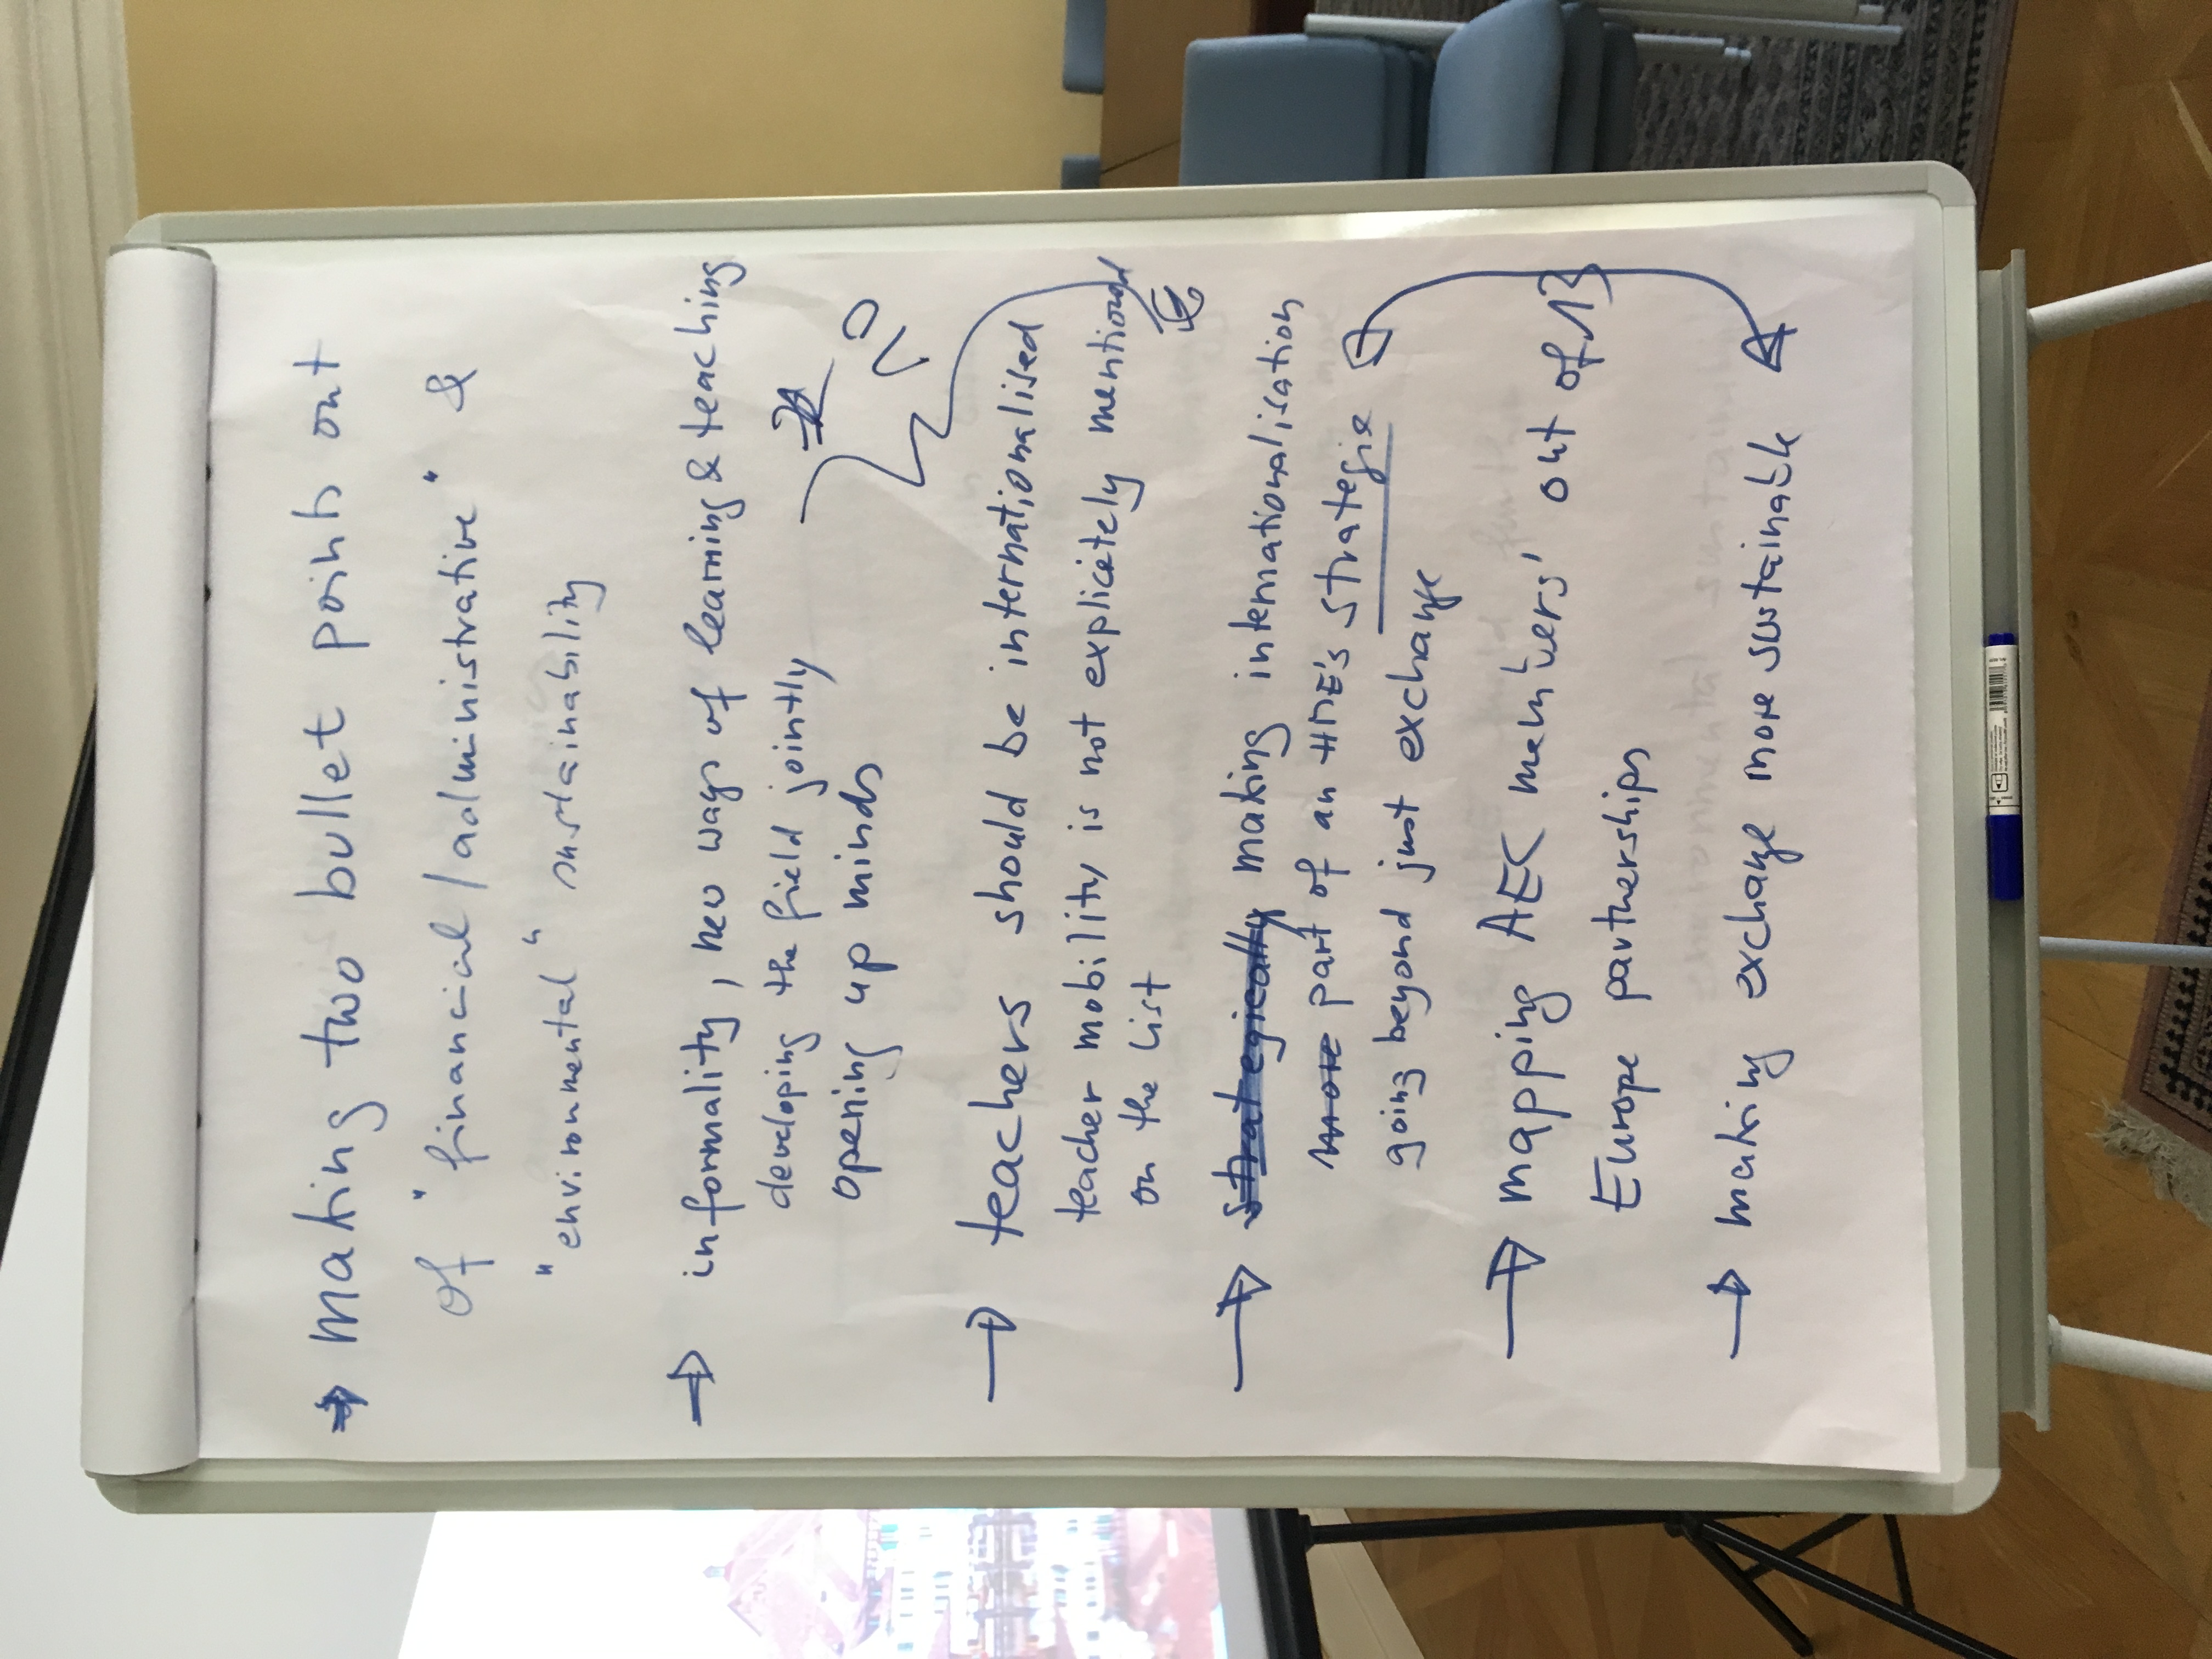 → making two bullet points out
of "financial/administrative" &
"environmental" sustainability
→ informality, new ways of learning & teaching
developing the field jointly
opening up minds
→ teachers should be internationalised
teacher mobility is not explicitely mentioned
on the list
→ strategically making internationalisation
more part of an HME's strategie
going beyond just exchange
→ mapping AEC members' out of 13
Europe partnerships
→ making exchange more sustainable